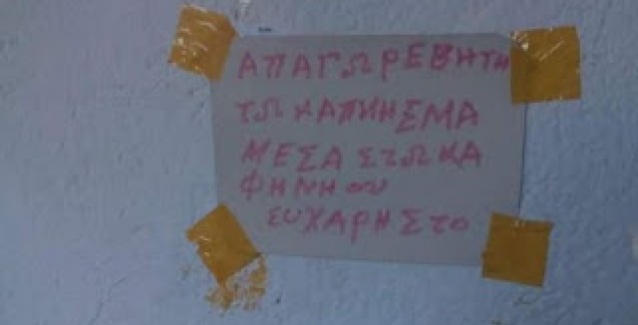 ΑΠΑΓΩΡΕΒΗΤΗ
ΤΩ ΚΑΠΗΗΣΜΑ
ΜΕΣΑ ΣΤΩ ΚΑ
ΦΗΝΗΟΥ
ΕΥΧΑΡΗΣΤΟ